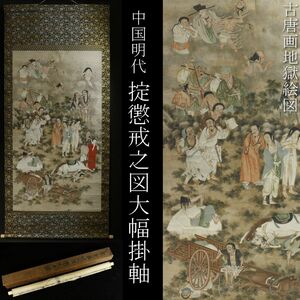 中国明代 掟懲戒之図大幅掛軸
古唐画地獄絵図